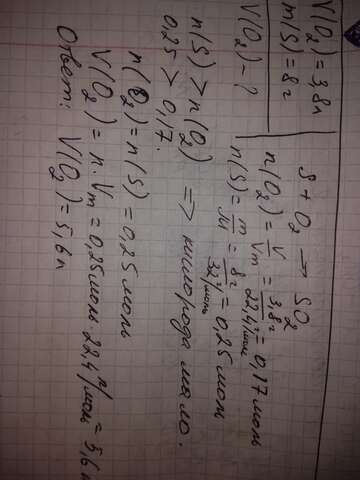 V(O₂) = 3,8л
m(S) = 8г
V(O₂) - ?
S + O₂ → SO₂
n(O₂) = V/Vm = 3,8л/22,4л/моль = 0,17 моль
n(S) = m/M = 8г/32г/моль = 0,25 моль
n(S) > n(O₂) ⇒ кислорода мало.
0,25 > 0,17.
n(O₂) = n(S) = 0,25 моль
V(O₂) = n · Vm = 0,25 моль · 22,4 л/моль = 5,6 л
Ответ: V(O₂) = 5,6 л